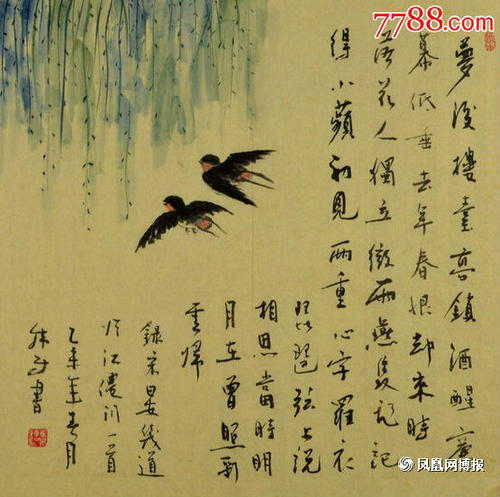 7788.com
夢後樓臺高鎖酒醒簾
幕低垂去年春恨却來時
落花人獨立微雨燕雙飛記
得小蘋初見兩重心字羅衣
琵琶弦上說
相思當時明
月在曾照彩
雲歸
錄宋晏幾道
臨江僊詞一首
乙未年春月
書
凤凰网博报